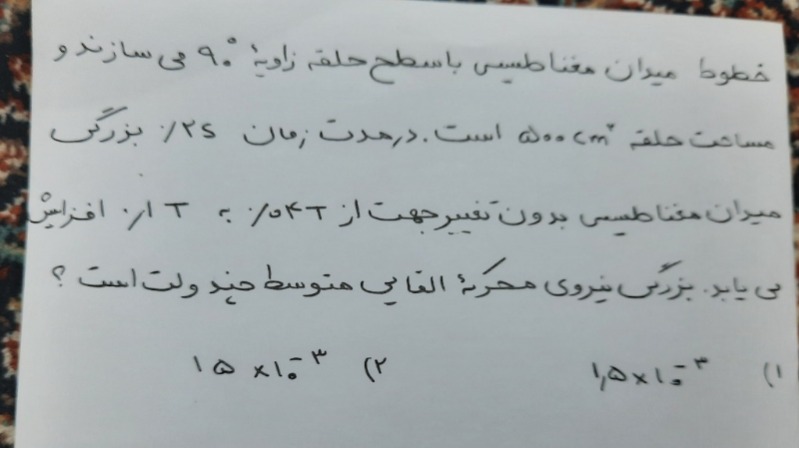 خطوط میدان مغناطیسی با سطح حلقه زاویهٔ ۹۰° می سازند و
مساحت حلقه ۵۰۰cm² است. در مدت زمان ۰/۲s بزرگی
میدان مغناطیسی بدون تغییر جهت از ۰/۰۴T به ۰/۱T افزایش
می یابد. بزرگی نیروی محرکهٔ القایی متوسط چند ولت است ؟
۱) ۱,۵×۱۰⁻³ ۲) ۱۵×۱۰⁻³